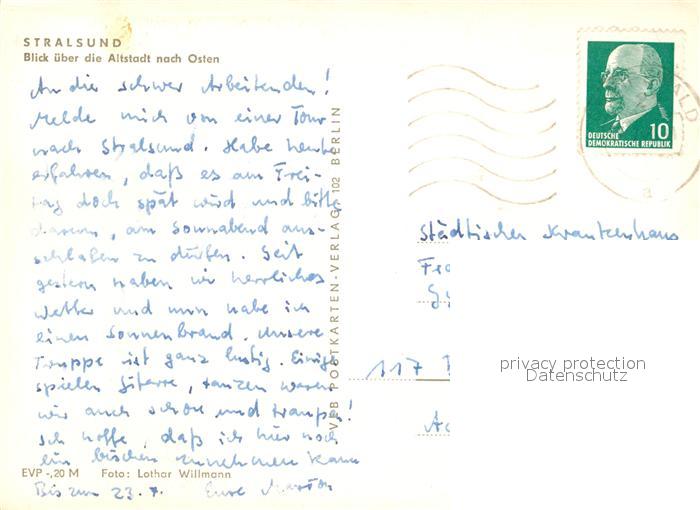 STRALSUND
Blick über die Altstadt nach Osten
An die schwer Arbeitenden!
Melde mich von einer Tour
nach Stralsund. Habe heute
erfahren, daß es am Frei-
tag doch spät wird und bitte
darum, am Sonnabend aus-
schlafen zu dürfen. Seit
gestern haben wir herrliches
Wetter und nun habe ich
einen Sonnenbrand. Unsere
Truppe ist ganz lustig. Einige
spielen Gitarre, tanzen waren
wir auch schon und trampen!
Ich hoffe, daß ich hier noch
ein bischen zunehmen kann
Bis zum 23.7. Eure
EVP -,20 M Foto: Lothar Willmann
VEB POSTKARTEN-VERLAG 102 BERLIN
DEUTSCHE
DEMOKRATISCHE REPUBLIK
10
ALD
a
Städtisches Krankenhaus
117
privacy protection
Datenschutz